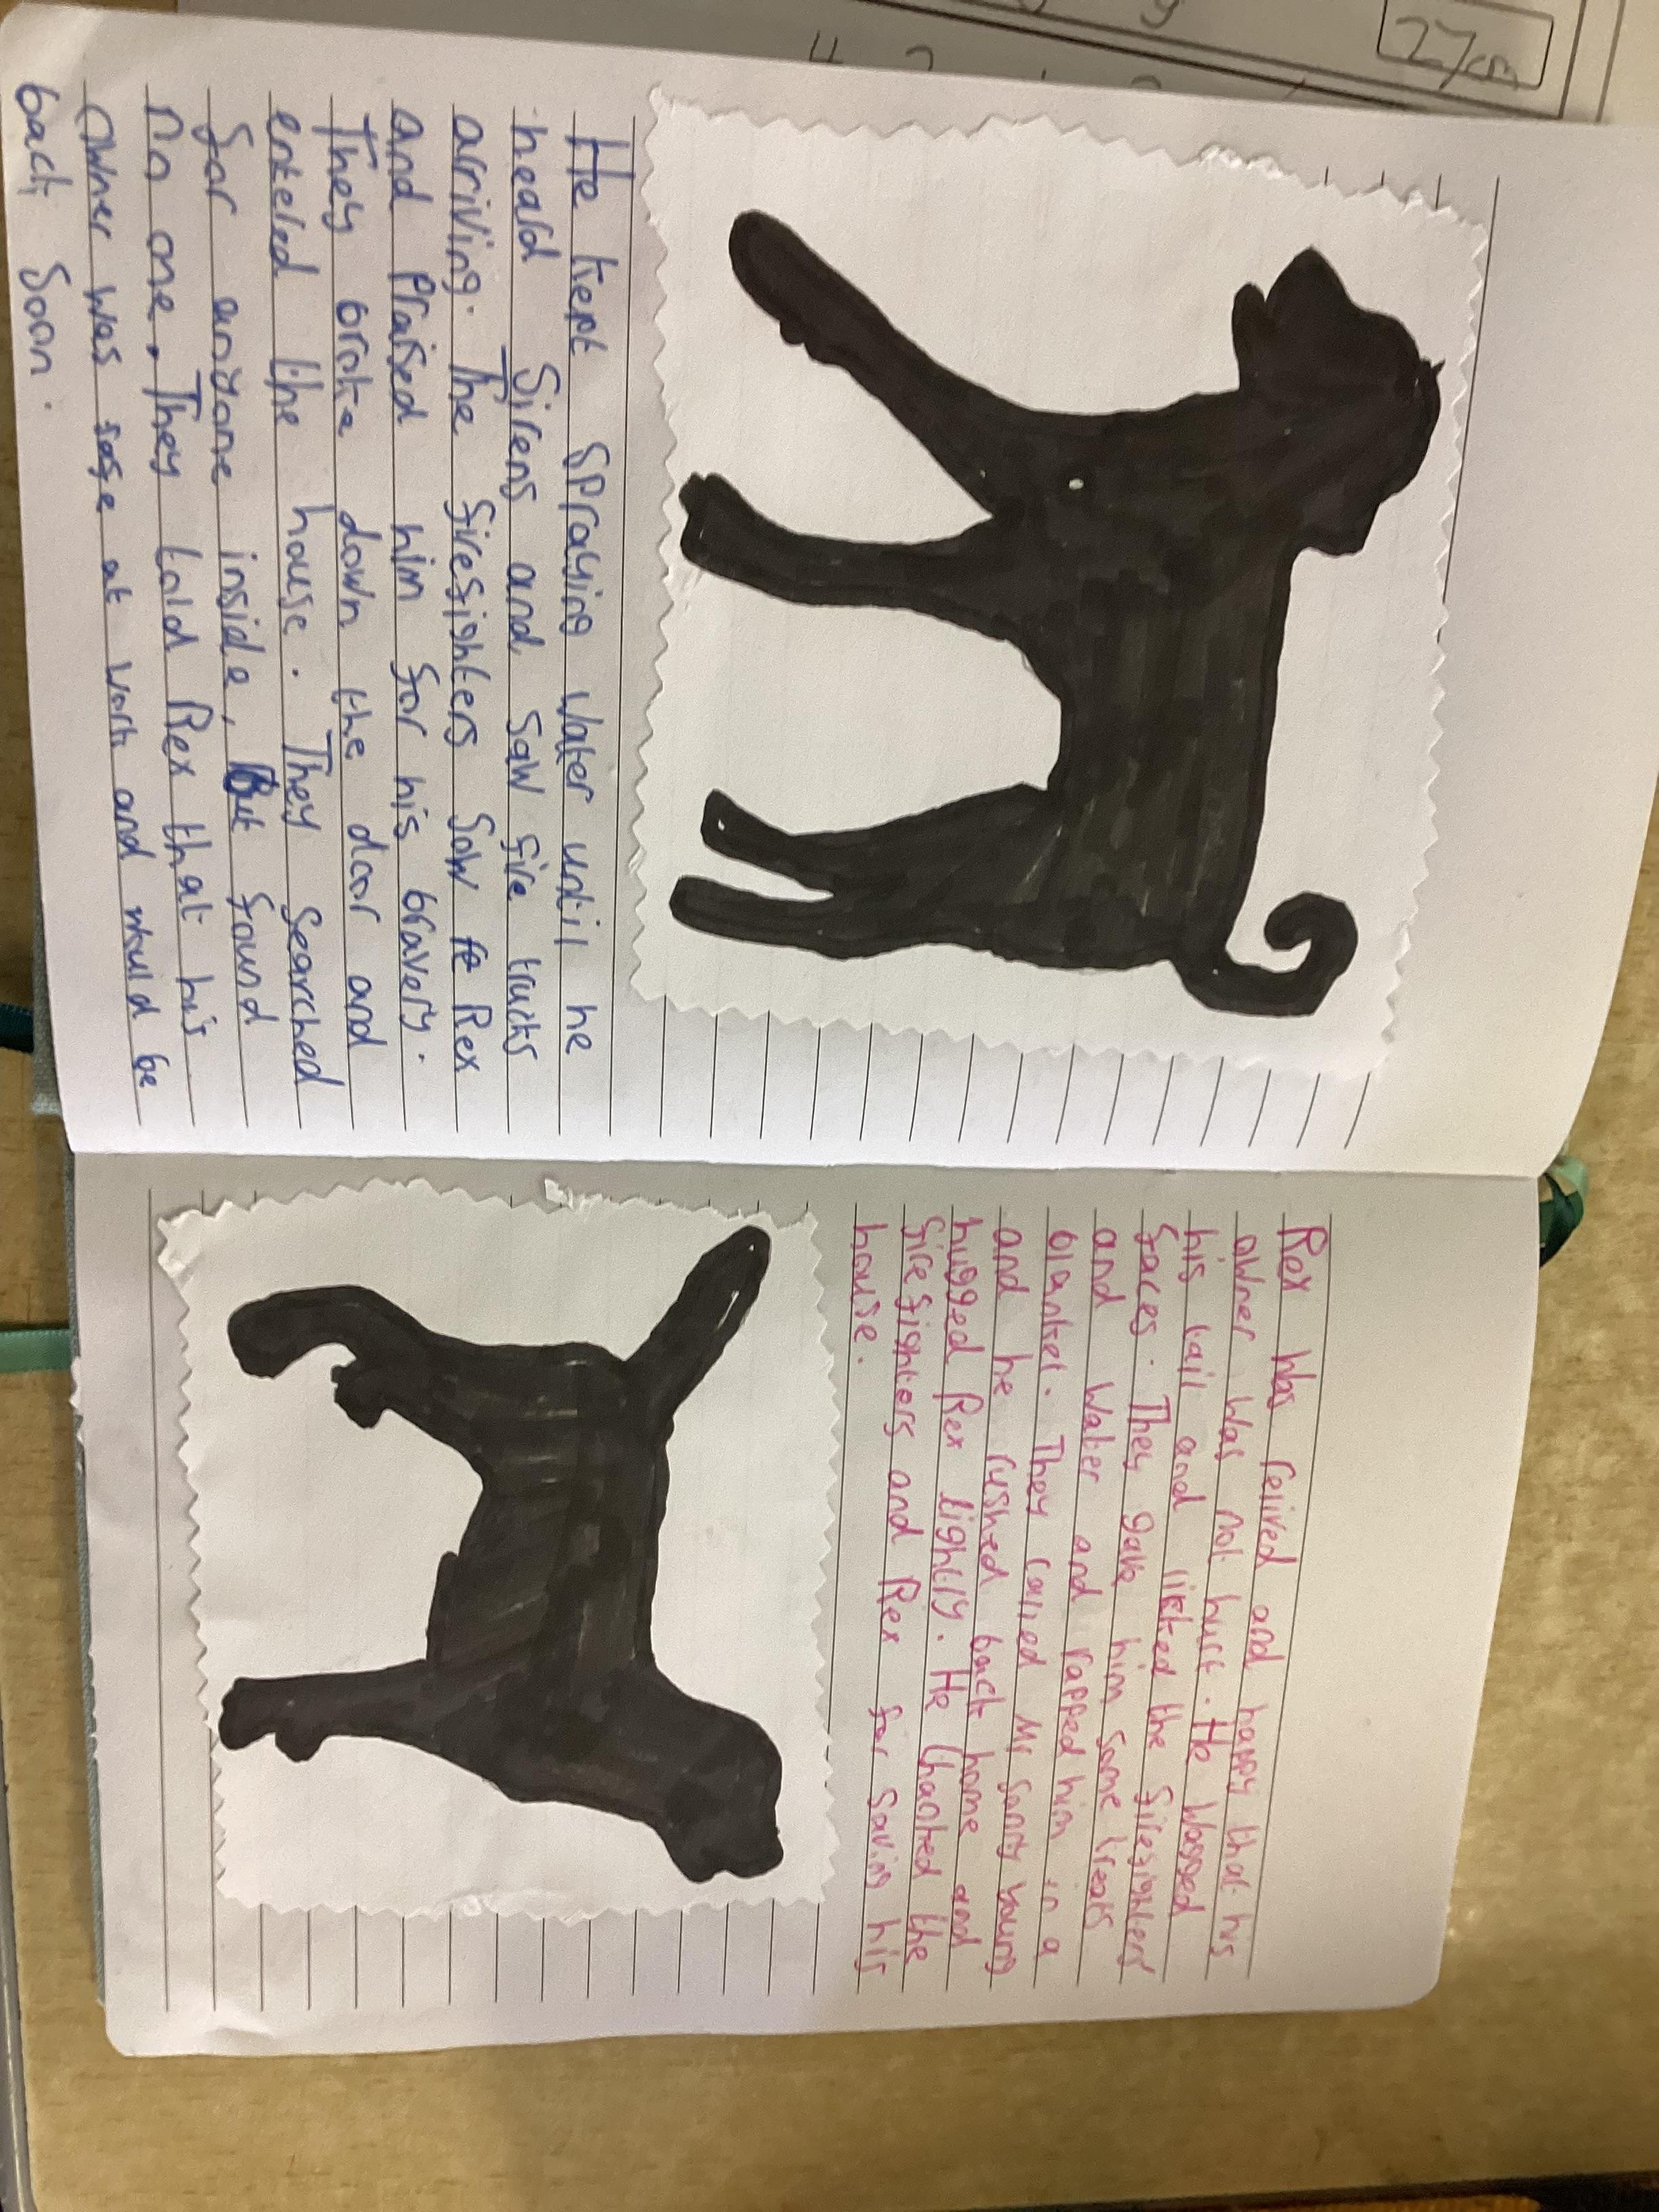 27cm
He kept spraying water until he
heard sirens and saw fire trucks
arriving. The firefighters saw Rex
and praised him for his bravery.
They broke down the door and
entered the house. They searched
for anyone inside, But found
no one. They told Rex that his
owner was safe at work and would be
back soon.
Rex was relived and happy that his
owner was not hurt. He wagged
his tail and licked the firefighters
faces. They gave him some treats
and water and rapped him in a
blanket. They called Mr young
and he rushed back home and
hugged Rex tightly. He thanked the
firefighters and Rex for saving his
house.